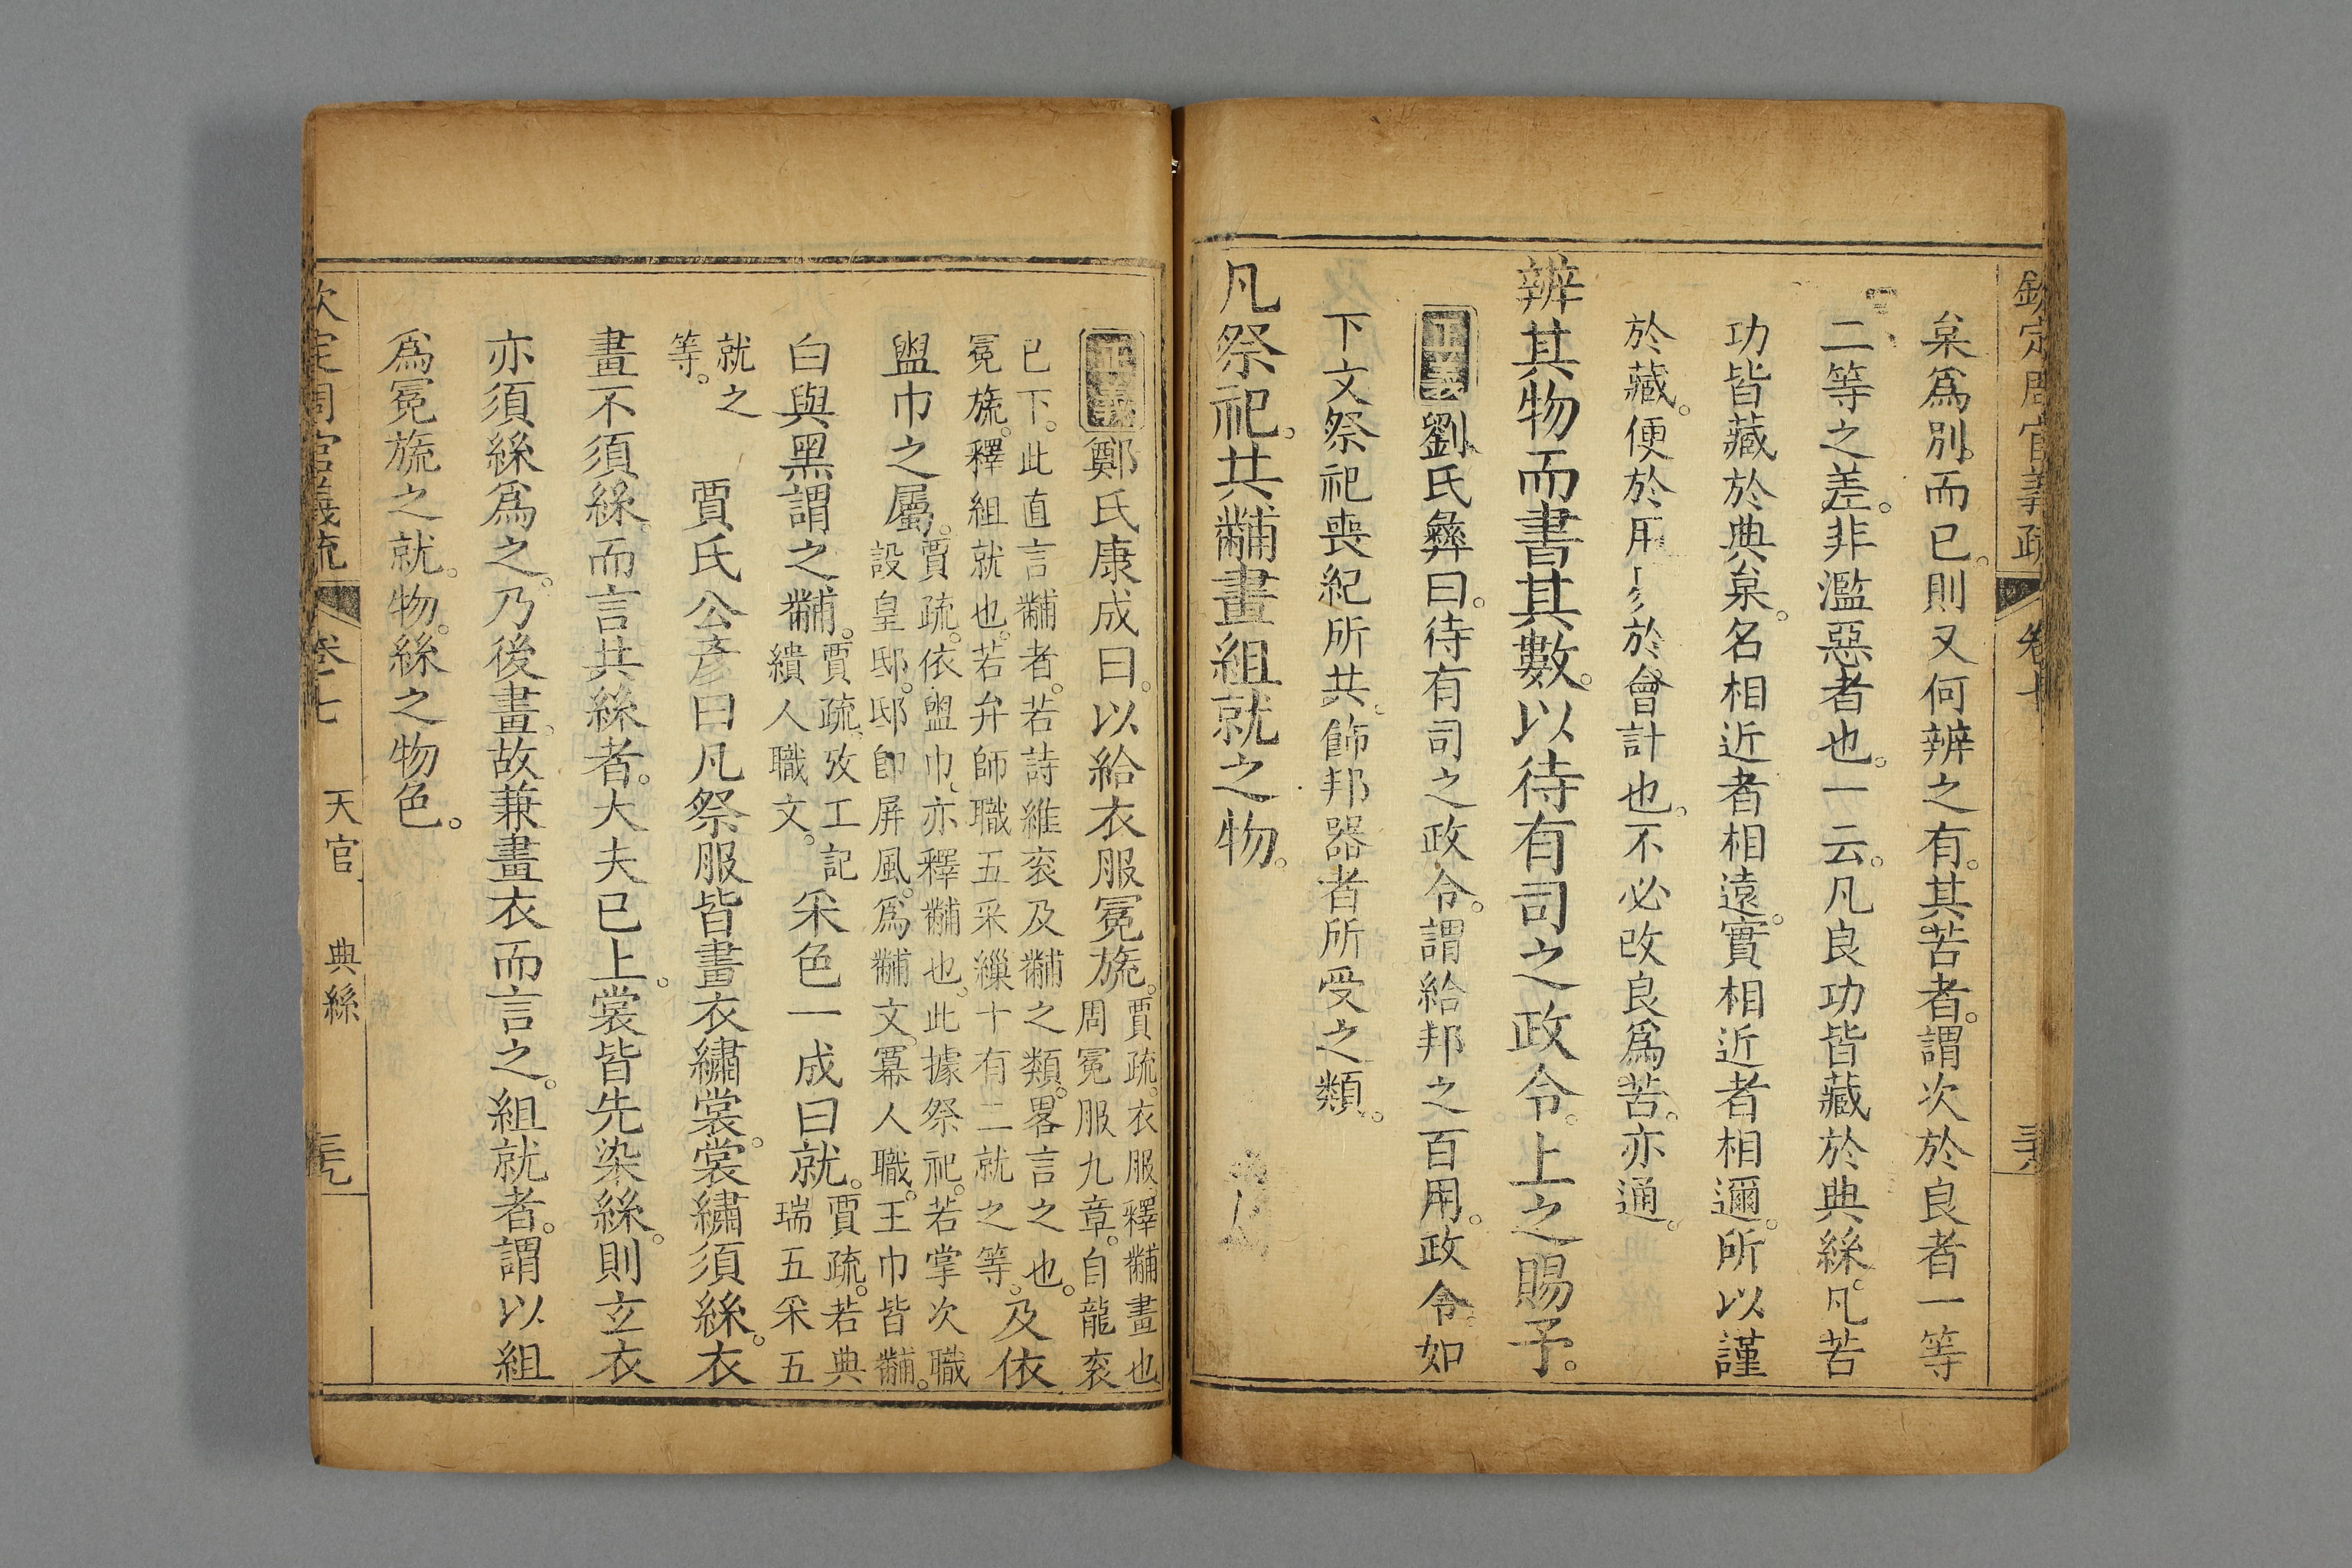 欽定周官義疏 卷七
枲爲別。而已。則又何辨之有。其苦者。謂次於良者一等
二等之差。非濫惡者也。一云。凡良功皆藏於典絲。凡苦
功皆藏於典枲。名相近者相遠。實相近者相邇。所以謹
於藏。便於用 於會計也。不必改良爲苦。亦通。
辨其物而書其數。以待有司之政令。上之賜予。
正義劉氏彝曰。待有司之政令。謂給邦之百用。政令。如
下文祭祀喪紀所共。飾邦器者所受之類。
凡祭祀。共黼畫組就之物。
正義鄭氏康成曰。以給衣服冕旒。賈疏。衣服釋黼畫也
周冕服九章。自龍衮
已下。此直言黼者。若詩維衮及黼之類。畧言之也。
冕旒。釋組就也。若弁師職五采繅十有二就之等。及依
盥巾之屬。賈疏。依盥巾、亦釋黼也。此據祭祀。若掌次職
設皇邸。邸卽屏風。爲黼文。冪人職。王巾皆黼。
白與黑謂之黼。賈疏。攷工記
繢人職文。采色一成曰就。賈疏。若典
瑞五采五
就之
等。賈氏公彥曰凡祭服皆畫衣繡裳。裳繡須絲。衣
畫不須絲。而言共絲者。大夫已上。裳皆先染絲。則玄衣
亦須絲爲之。乃後畫。故兼畫衣而言之。組就者。謂以組
爲冕旒之就。物。絲之物色。
欽定周官義疏 卷七 天官 典絲